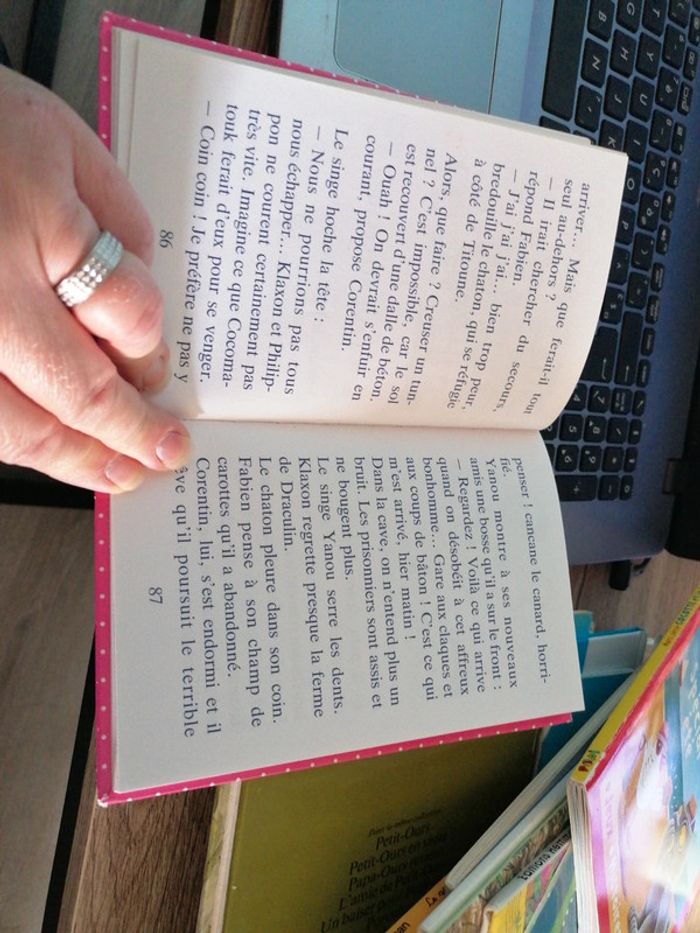 arriver... Mais que ferait-il tout
seul au-dehors ?
— Il irait chercher du secours,
répond Fabien.
— J'ai j'ai j'ai... bien trop peur,
bredouille le chaton, qui se réfugie
à côté de Titoune.
Alors, que faire ? Creuser un tun-
nel ? C'est impossible, car le sol
est recouvert d'une dalle de béton.
— Ouah ! On devrait s'enfuir en
courant, propose Corentin.
Le singe hoche la tête :
— Nous ne pourrions pas tous
nous échapper... Klaxon et Philip-
pon ne courent certainement pas
très vite. Imagine ce que Cocoma-
touk ferait d'eux pour se venger.
— Coin coin ! Je préfère ne pas y
86
penser ! cancane le canard, horri-
fié.
Yanou montre à ses nouveaux
amis une bosse qu'il a sur le front :
— Regardez ! Voilà ce qui arrive
quand on désobéit à cet affreux
bonhomme... Gare aux claques et
aux coups de bâton ! C'est ce qui
m'est arrivé, hier matin !
Dans la cave, on n'entend plus un
bruit. Les prisonniers sont assis et
ne bougent plus.
Le singe Yanou serre les dents.
Klaxon regrette presque la ferme
de Draculin.
Le chaton pleure dans son coin.
Fabien pense à son champ de
carottes qu'il a abandonné.
Corentin, lui, s'est endormi et il
rêve qu'il poursuit le terrible
87
Dans la même collection
Petit-Ours
Petit-Ours en
Papa-Ours
L'amie de
Un baiser pour